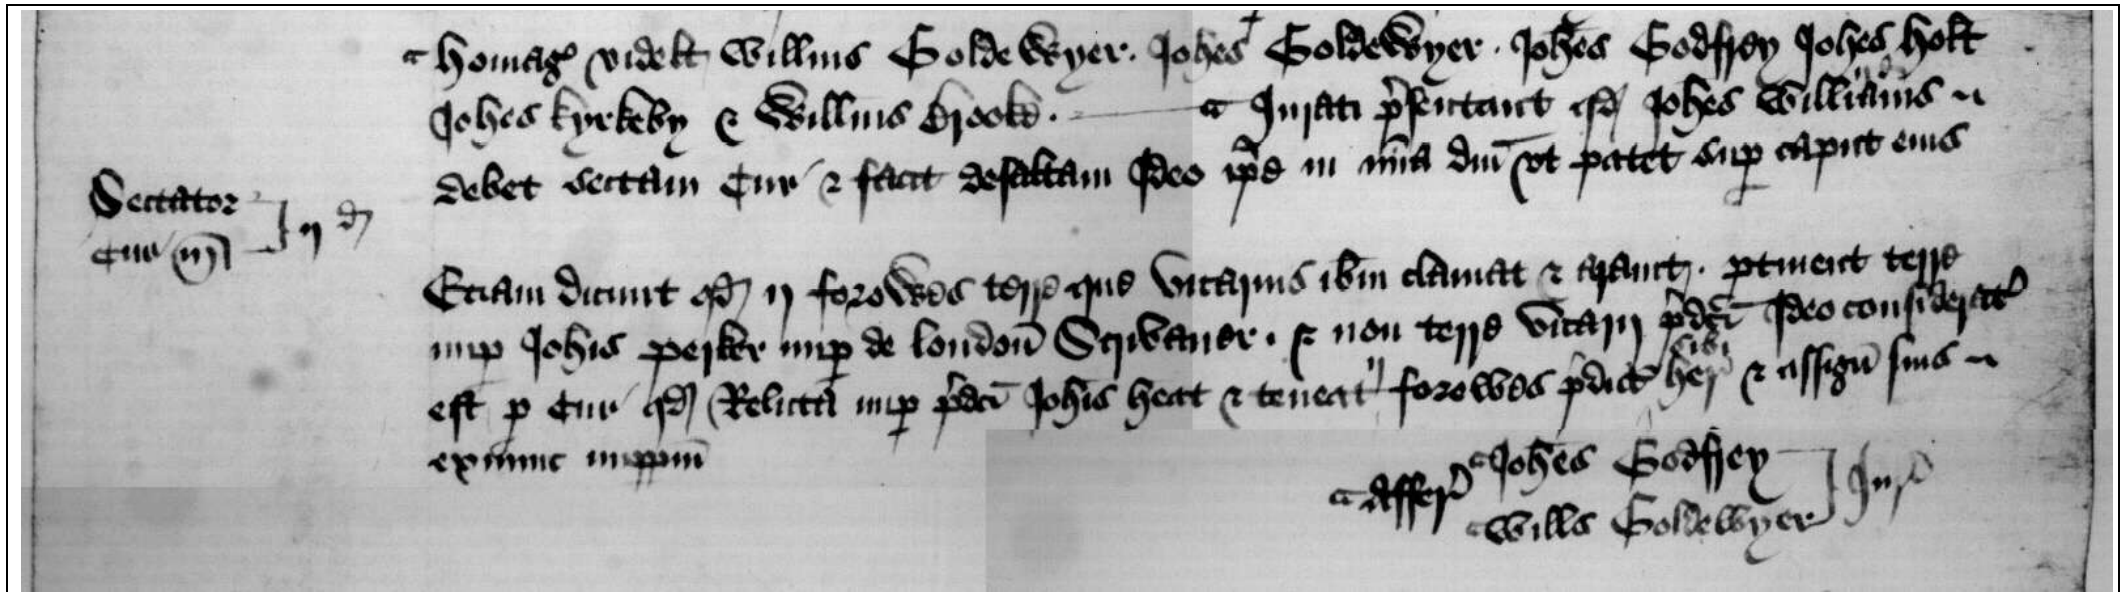 Homag videlt Willms Goldewyer. Johes Goldewyer. Johes Godffrey Johes Holt
Johes kyrkeby & Willms Brooke. Jurati presentant qd Johes Williams
debet sectam Cur & facit defaltam Ideo ipse in mia dni vt patet sup caput eius
Sectator
Cur
ij d
Etiam dicunt qd ij forowes terre que vicarius ibm clamat & . ptinent terre
nup Johis perker nup de london Scrivaner. & non terre vicarij pdci Ideo considerat
sibi
est p Cur qd Relicta nup pdci Johis heat & teneat ij forowes pdict her & assign suis
exnunc imppm
Affer Johes Godffrey
Wills Goldewyer Jur